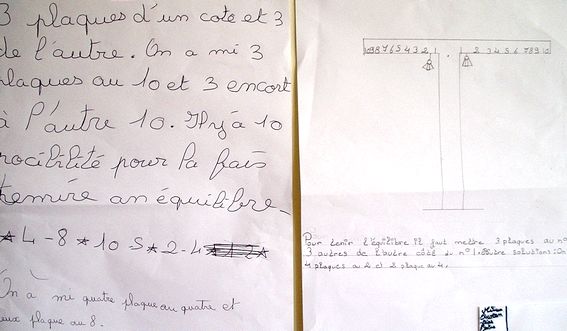 3 plaques d'un coté et 3
de l'autre. On a mi 3
plaques au 10 et 3 encort
à l'autre 10. Il y a 10
pocibilité pour la fais
temire an équilibre.
* 4 - 8 * 10 - 5 * 2 - 4 *
On a mi quatre plaque au quatre et
eux plaque au 8.
10 9 8 7 6 5 4 3 2 1 1 2 3 4 5 6 7 8 9 10
Pour tenir l'équilibre il faut mettre 3 plaques au n°
3 autres de l'autre côté du n° 1. autre solutions: On
4 plaques au 2 et 2 plaque au 4.